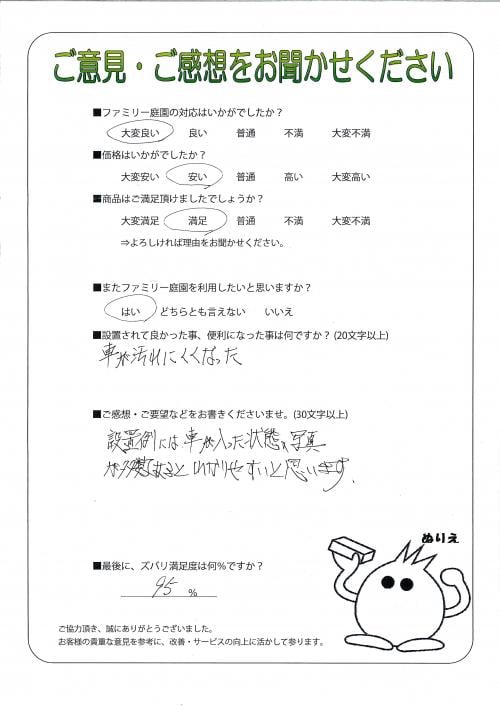 ご意見・ご感想をお聞かせください
■ファミリー庭園の対応はいかがでしたか？
大変良い 良い 普通 不満 大変不満
■価格はいかがでしたか？
大変安い 安い 普通 高い 大変高い
■商品はご満足頂けましたでしょうか？
大変満足 満足 普通 不満 大変不満
⇒よろしければ理由をお聞かせください。
■またファミリー庭園を利用したいと思いますか？
はい どちらとも言えない いいえ
■設置されて良かった事、便利になった事は何ですか？(20文字以上)
車が汚れにくくなった
■ご感想・ご要望などをお書きくださいませ。(30文字以上)
設置例には車が入った状態の写真
が あると わかりやすいと思います。
ぬりえ
■最後に、ズバリ満足度は何％ですか？
95 ％
ご協力頂き、誠にありがとうございました。
お客様の貴重な意見を参考に、改善・サービスの向上に活かして参ります。